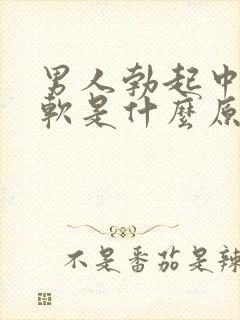 男人勃起中
軟是什麼原
不是番茄是辣